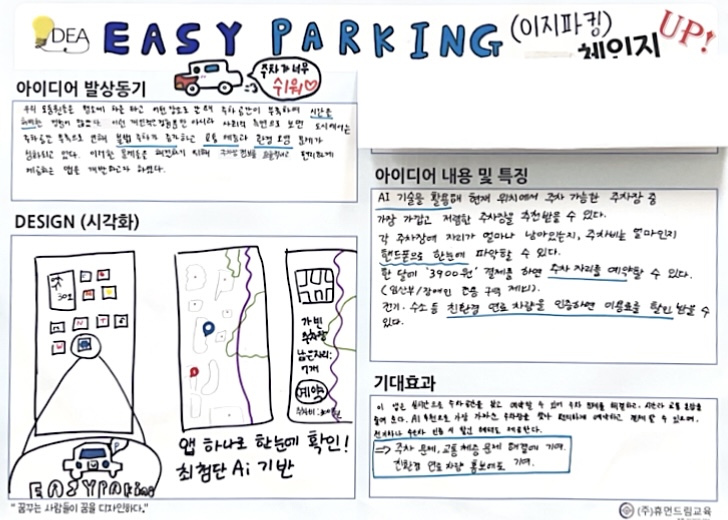 IDEA EASY PARKING (이지파킹) 체인지 UP!
주차가 너무
쉬워♡
아이디어 발상동기
우리 모둠원들은 평소에 차를 타고 어떤 장소로 갈 때 주차공간이 부족하여 시간을
허비한 경험이 많았다. 이런 개인적인 불편함 뿐 아니라 사회적 측면으로 보면 도시에서는
주차공간 부족으로 인해 불법 주차가 증가하고 교통 체증과 환경 오염 문제가
심화되고 있다. 이러한 문제들을 해결하기 위해 편리하게
제공하는 앱을 개발하고자 하였다.
DESIGN (시각화)
301
P
EASYPARKING
가빈
주차장
남은자리:
7개
예약
앱 하나로 한눈에 확인!
최첨단 Ai 기반
아이디어 내용 및 특징
AI 기술을 활용해 현재 위치에서 주차 가능한 주차장 중
가장 가깝고 저렴한 주차장을 추천받을 수 있다.
각 주차장에 자리가 얼마나 남아있는지, 주차비는 얼마인지
핸드폰으로 한눈에 파악할 수 있다.
한 달에 '3900원' 결제를 하면 주차 자리를 예약할 수 있다.
(임산부/장애인 전용 구역 제외).
전기·수소 등 친환경 연료 차량을 인증하면 이용료를 할인 받을 수
있다.
기대효과
이 앱은 실시간으로 주차공간을 보고 예약할 수 있어 주차 문제를 해결하고, 시간과 교통 혼잡을
줄여 준다. AI 추천으로 가장 가까운 주차장을 찾아 편리하게 예약하고 결제할 수 있으며,
전기차나 수소차 인증 시 할인 혜택도 제공한다.
=> 주차 문제, 교통 체증 문제 해결에 기여.
친환경 연료 차량 홍보에도 기여.
"꿈꾸는 사람들이 꿈을 디자인하다."
(주)휴먼드림교육